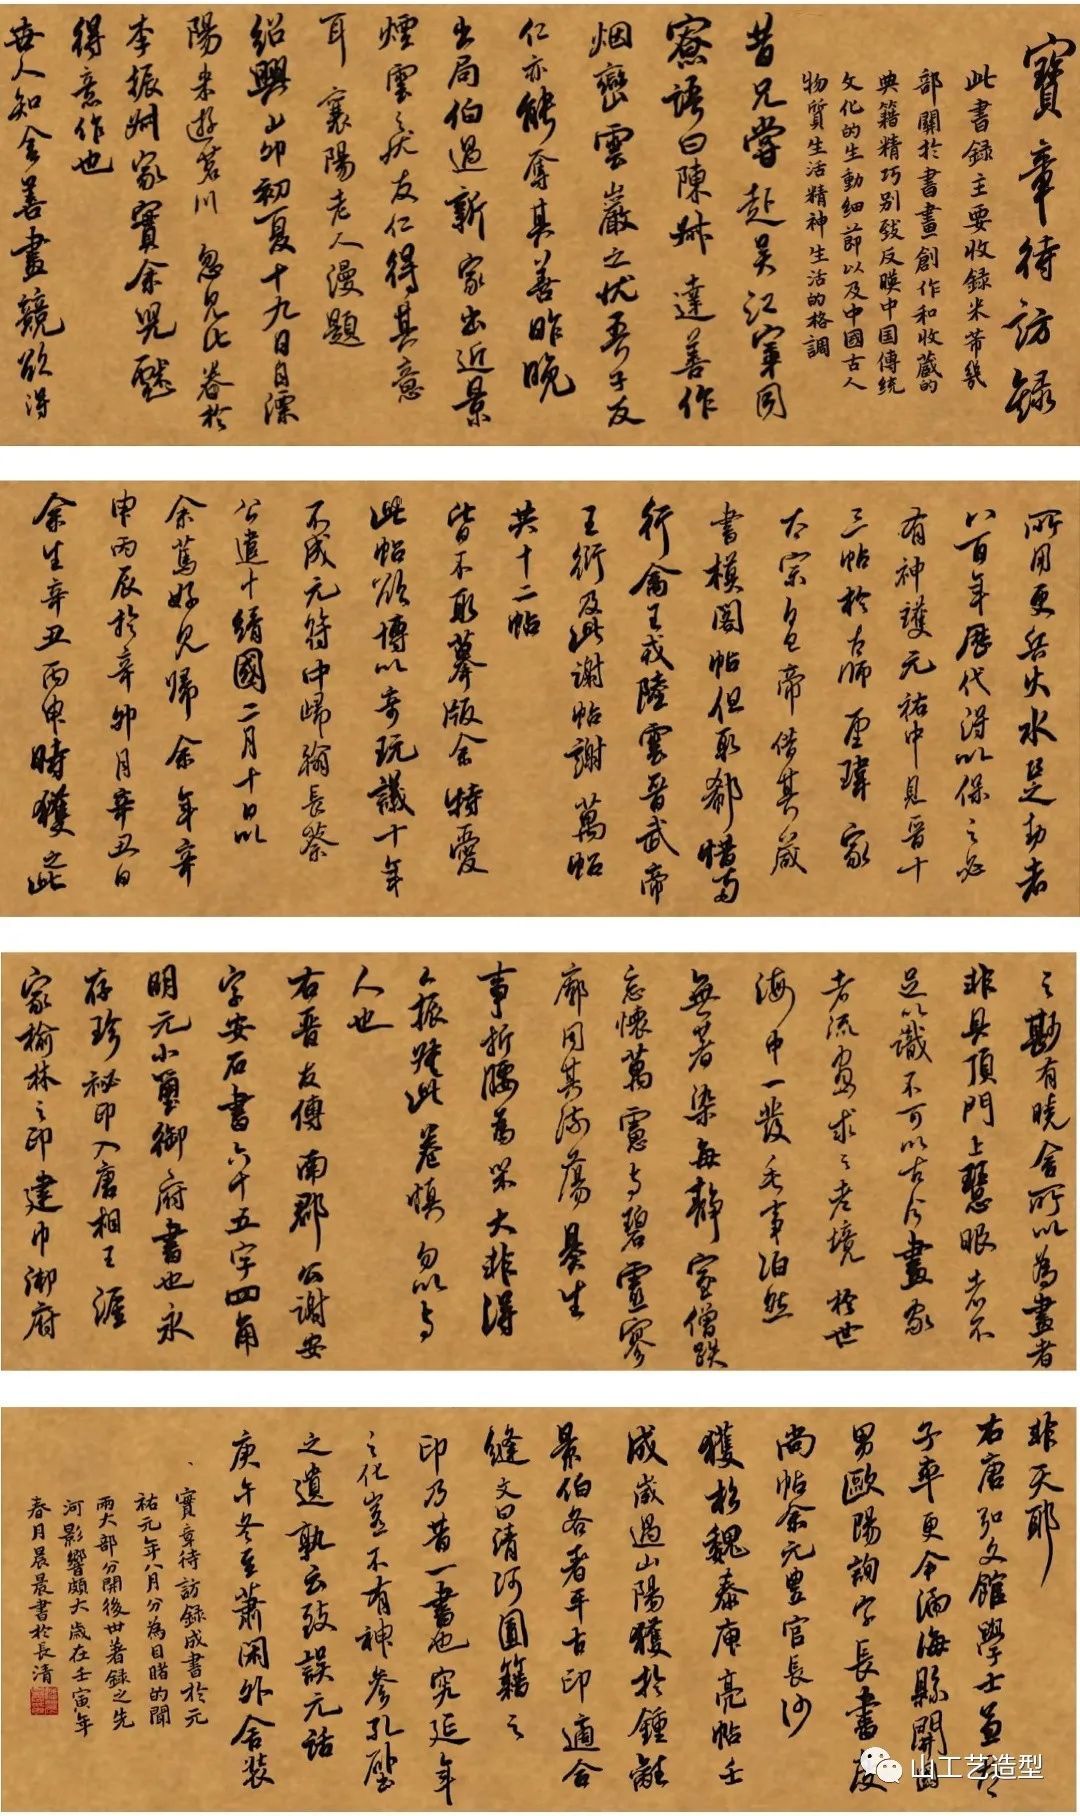 寶章待訪録
此書録主要收録米芾幾
部關於書畫創作和收蔵的
典籍精巧别致反映中国傳統
文化的生動細節以及中國古人
物質生活精神生活的格調
昔兄嘗赴吴江宰同
寮語曰陳叔達善作
烟巒雲巖之状吾子友
仁亦能奪其善昨晚
出局伯過新家出近景
煙雲之状友仁得其意
耳襄陽老人漫題
紹興山卯初夏十九日自溧
陽来遊苕川忽見此卷於
李振叔家實余兒戲
得意作也
世人知余善畫競欲得
所用更兵火水是劫者
八百年歷代得以保之必
有神護元祐中見晉十
三帖於古師李瑋家
太宗皇帝借其蔵
書模閣帖但取郗愔兩
行禽王戎陸雲晉武帝
王衍及此謝帖謝萬帖
共十二帖
皆不取摹版余特愛
此帖欲博以奇玩議十年
不成元符中歸翰長蔡
公遺十靖國二月十日以
余篤好見歸余年辛
申丙辰於辛卯月辛丑日
余生辛丑丙申時獲之此
之尠有曉舍所以為畫者
非具頂門上慧眼者不
足以識不可以古今畫家
者流畫求之老境於世
海中一發毛事泊然
無著染每静室僧趺
忘懷萬慮与碧虚寥
廓同其流蕩曼生
事折腰為米大非得
公振雖此卷慎勿以与
人也
右晉友傳南郡公謝安
字安石書六十五字四角
明元小璽御府書也永
存珍祕印入唐相王涯
家榆林之印建巾御府
非天耶
右唐弘文館學士兼太
子率更令渤海縣開國
男歐陽詢字長書度
尚帖余元豊官長沙
獲於魏泰庾亮帖壬
成歲過山陽獲於鍾離
景伯各者平古印適合
縫文曰清河圖籍之
印乃昔一書也究延年
之化豈不有神參孔壁
之遺孰云致誤元話
庚午冬至蕭閑外舍装
寳章待訪録成書於元
祐元年八月分為目睹的聞
兩大部分開後世著録之先
河影響頗大歲在壬寅年
春月晨晨書於長清
山工艺造型